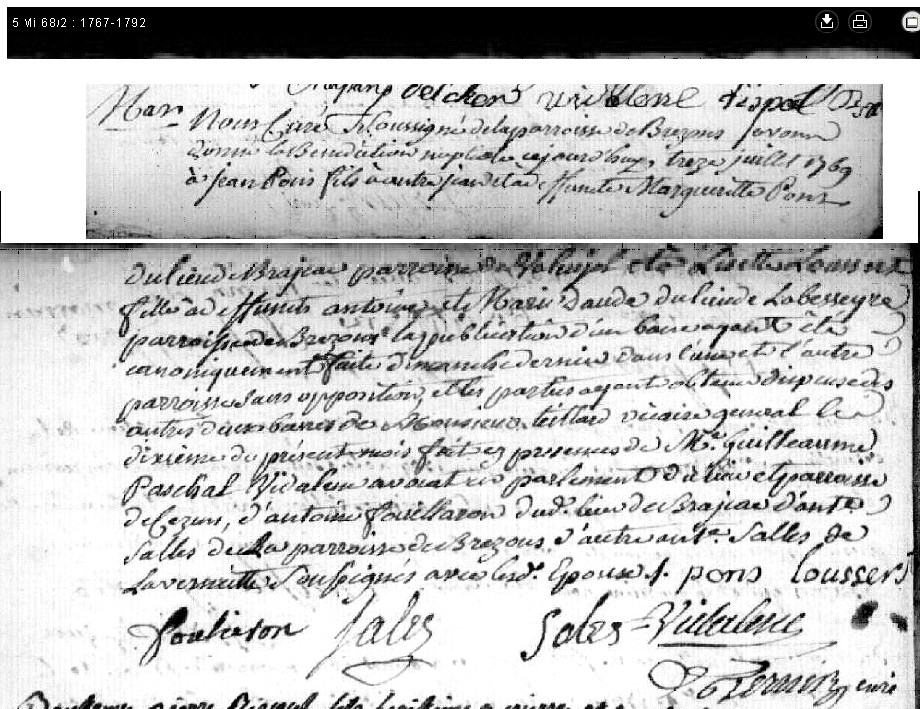 5 Mi 68/2 : 1767-1792
Vidalenc
Mar
Nous Curé Soussigné de la parroisse de Brezons avons
donné la Benediction nuptiale cejourdhuy treze juillet 1769
à Jean Pons fils à autre jean et à deffunte Margueritte Pons
du lieu de Brajac parroisse de et à Lisette Loussert
fille à deffunts antoine et Marie Daude du lieu de Labesseyre
parroisse de Brezons la publication d'un banc ayant été
canoniquement faite dimanche dernier dans l'une et l'autre
parroisse sans opposition, et les parties ayant obtenu dispense des
autres deux bancs de Monsieur teillard vicaire general le
dixieme du présent mois fait ez presences de Mr. guilleaume
Paschal Vidalenc avocat en parlement du lieu et parroisse
de Cezens, d'antoine foulliaron du d. lieu de Brajac d'ant.
Salles de La parroisse de Brezons d'autre ant. Salles de
Lavernette Soussignés avec les d. Epoux /. pons loussert
foulieron Sales Sales Vidalenc
curé